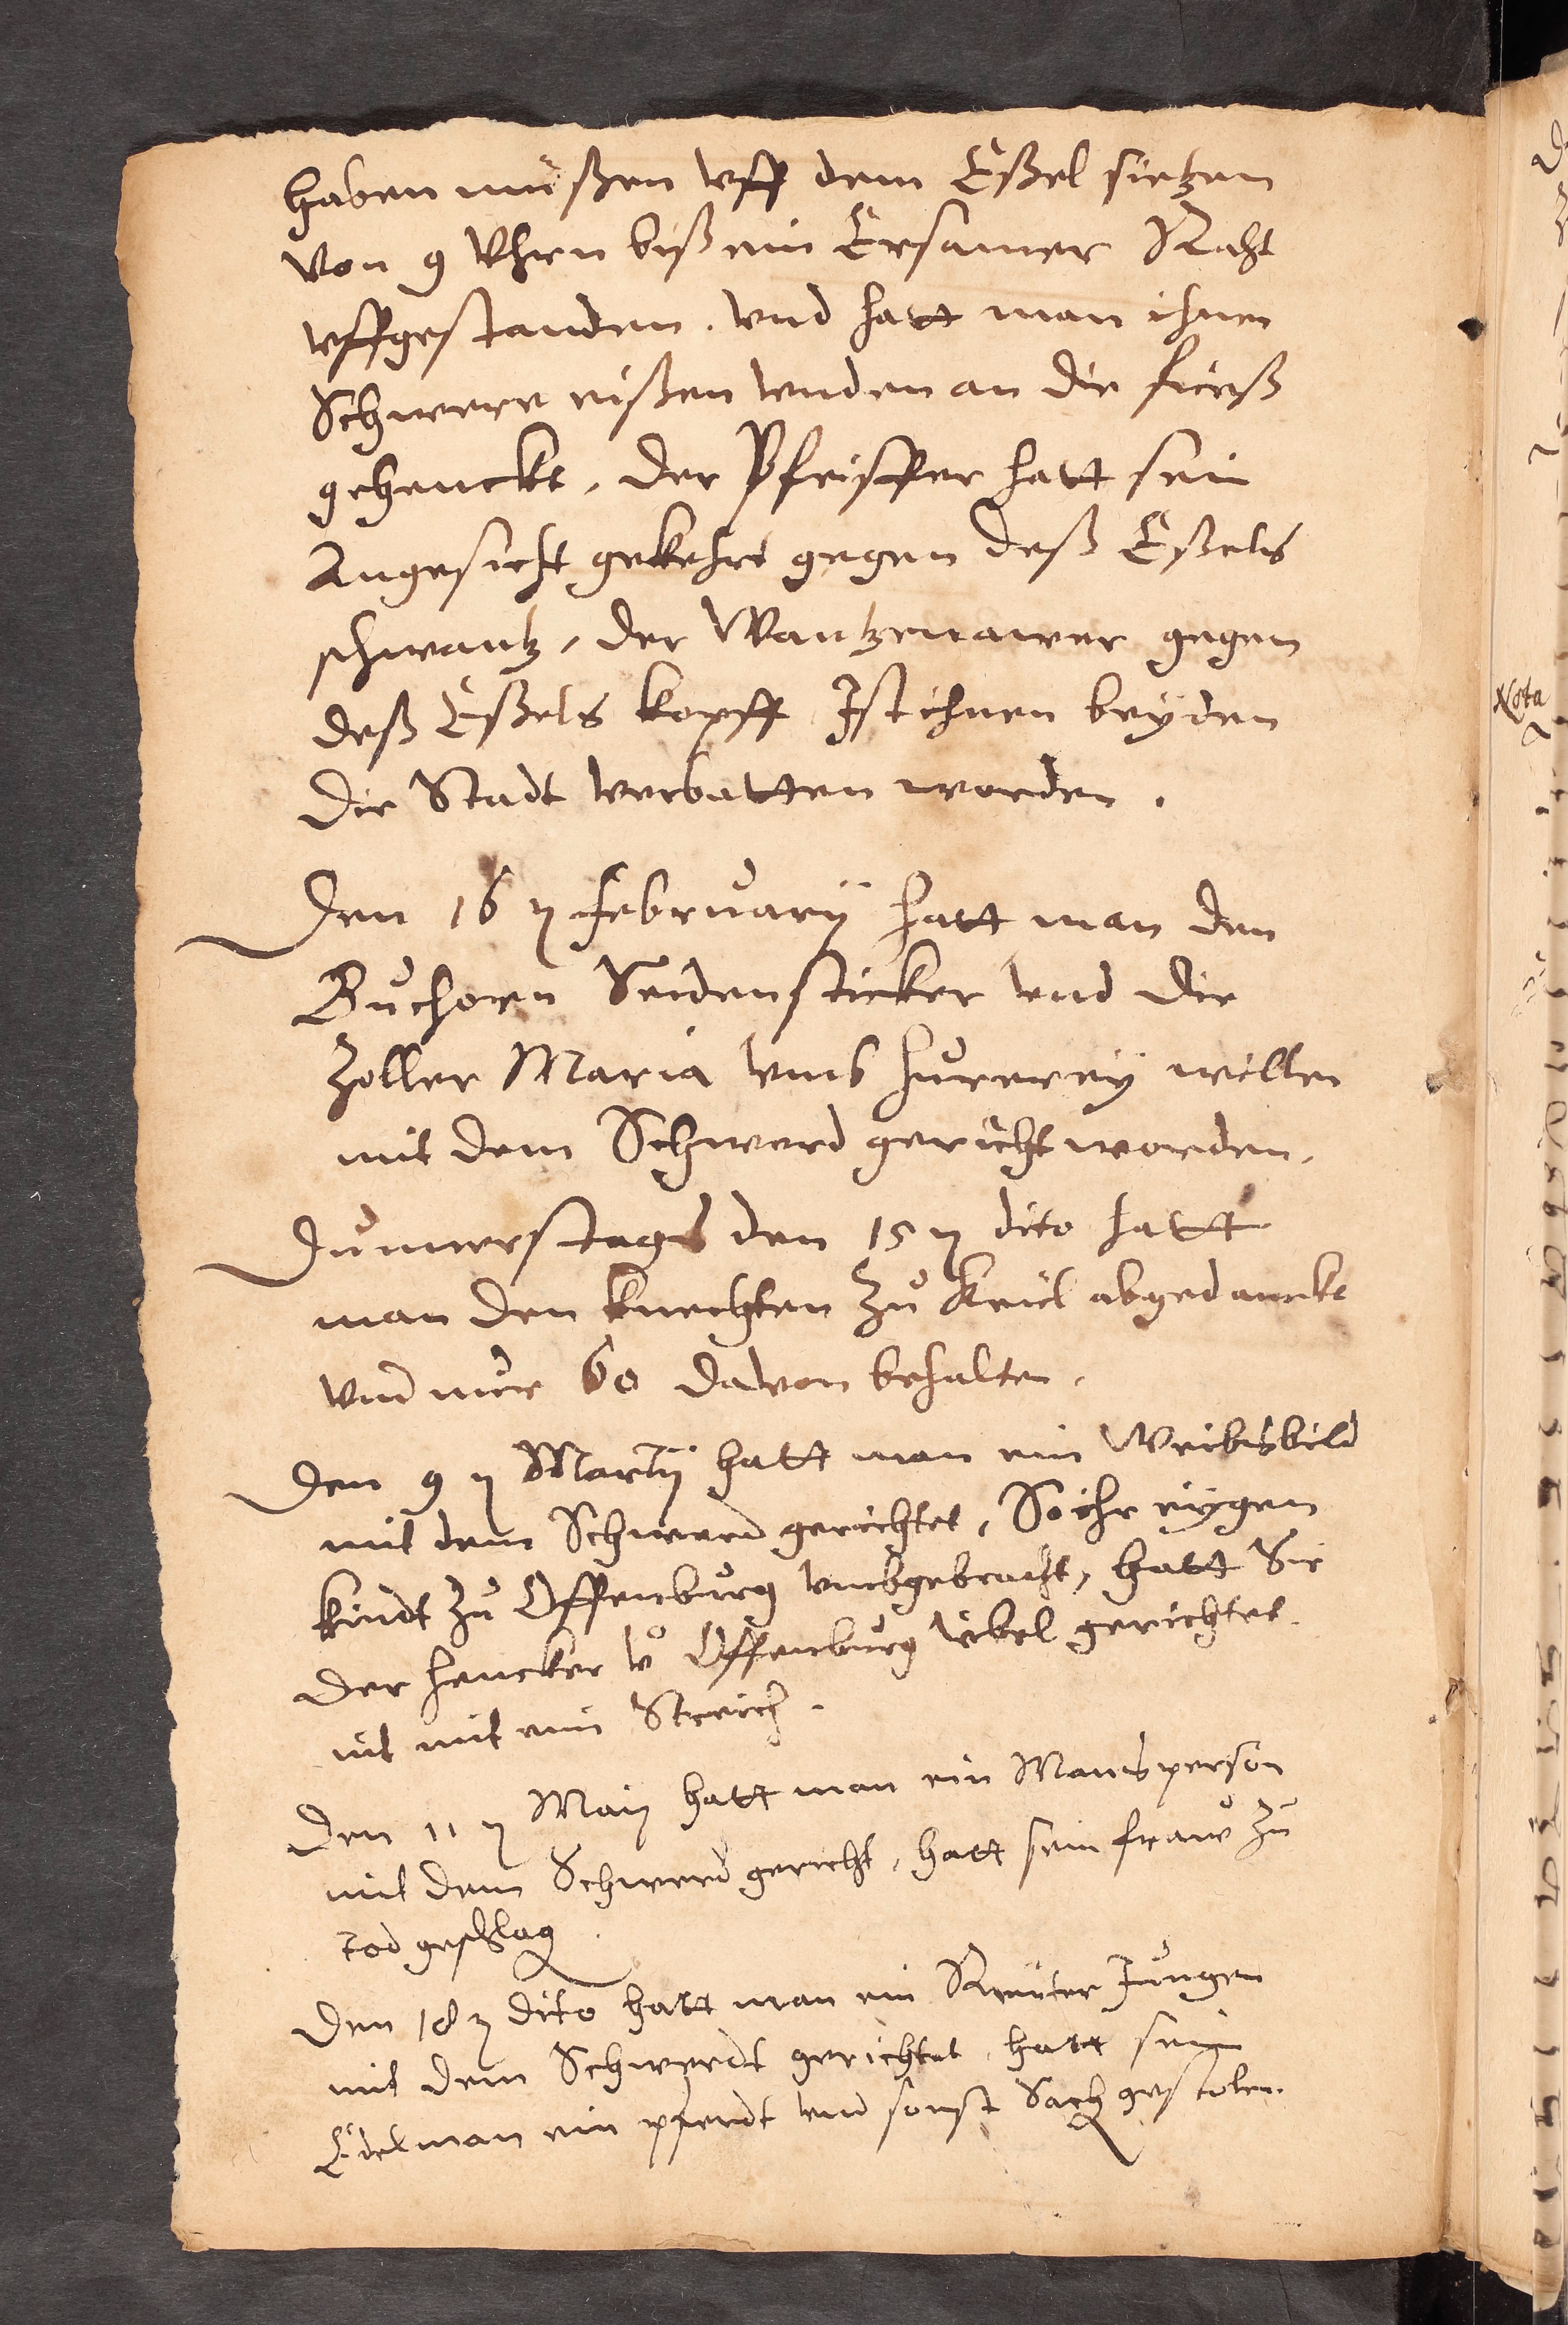 haben müßen vff dem Eßel sietzen
Von 9 Vhrn biß ein Ersamer Raht
vffgestanden. vnd hatt man ihnen
Schwere eißen vnden an die fieeß
gehenckt, der Pfeiffer hatt sein
Angesicht gekehrt gegen deß Eßels
schwantz, der Wantzenawer gegen
deß Eßels kopff Ist ihnen beyden
die Stadt verbotten worden.
Den 16 ꝫ februarÿ hatt man den
Buchorn Seidensticker vnd die
Zoller Maria vmb hurereÿ willen
mit dem Schwerd gericht worden.
Dunnerstags den 15 ꝫ dito hatt
man den knechten zu Keiel abgedanckt
vnd nur 60 davon behalten.
Den 9 ꝫ Martÿ hatt man ein Weibsbild
mit dem Schwerd gerichtet, So ihr eÿgen
kindt zu Offenburg vmbgebracht, hatt Sie
der hencker vo Offenburg vebel gerichtet.
nit mit eim Streich.
Den 11 ꝫ Maij hatt man ein Mansperson
mit dem Schwerd gericht, hatt sein fraw zu
tod geschlag
Den 18 ꝫ dito hatt man ein Reutter Jungen
mit dem Schwerdt gerichtet, hatt sein
Edelman ein pferdt vnd sonst Sach gestolen.
Nota